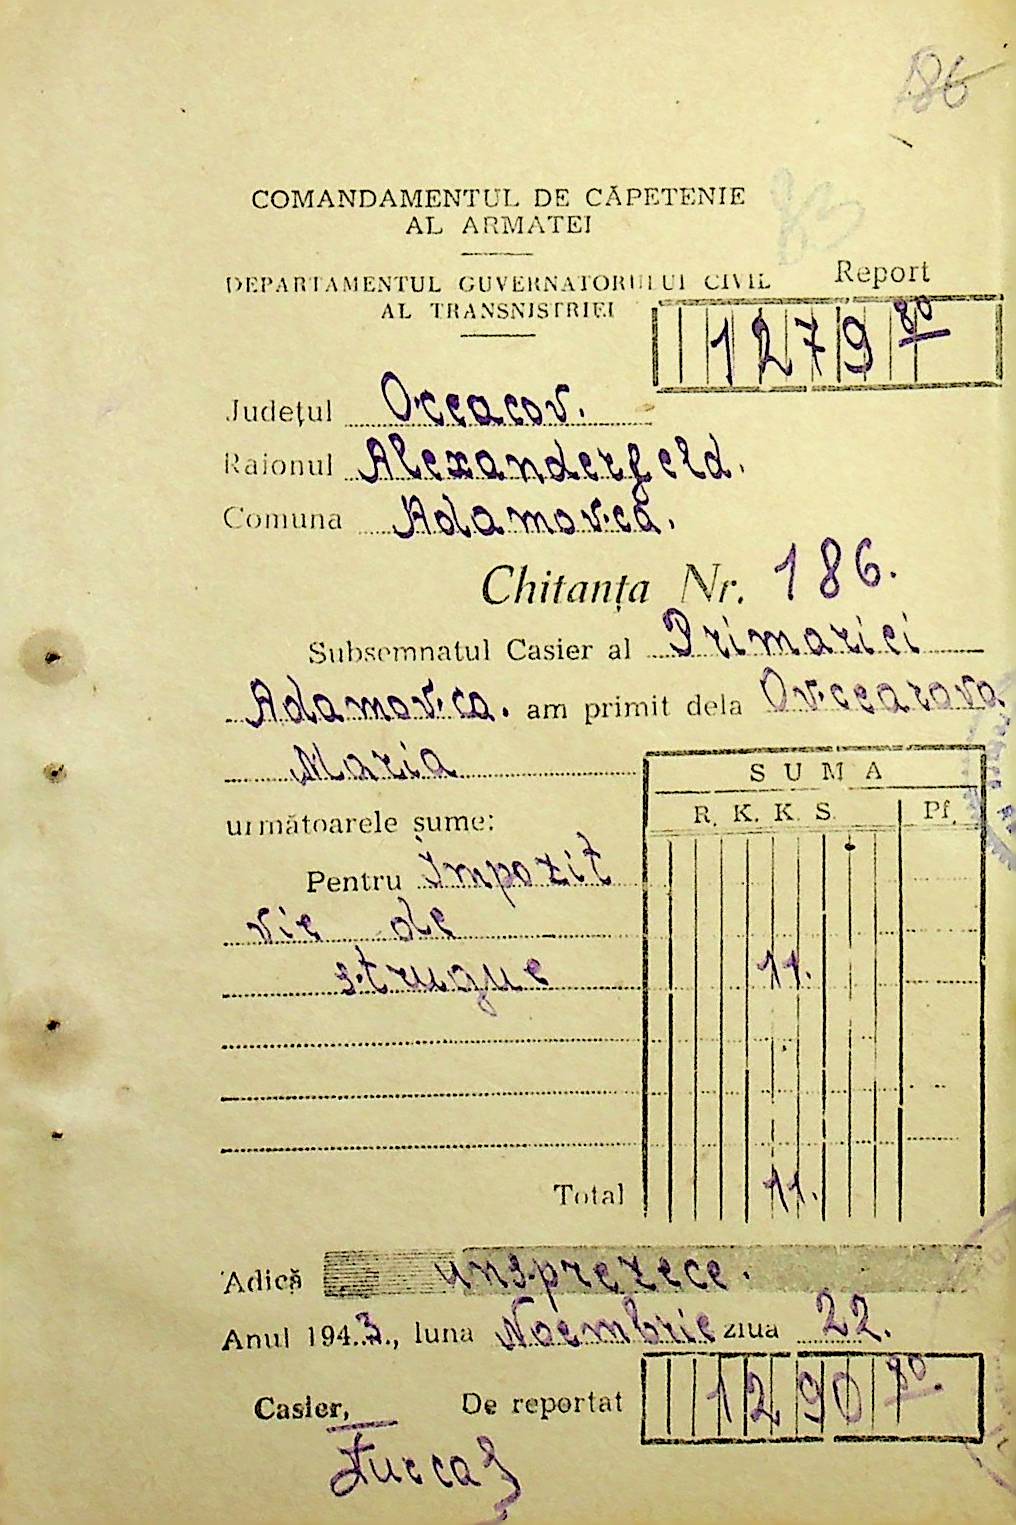 186
83
COMANDAMENTUL DE CĂPETENIE
AL ARMATEI
DEPARTAMENTUL GUVERNATORULUI CIVIL
AL TRANSNISTRIEI
Report
1279 80
Județul Oceacov.
Raionul Alexanderfeld.
Comuna Adamovca.
Chitanța Nr. 186.
Subsemnatul Casier al Primariei
Adamovca. am primit dela Ovcearova
Maria
SUMA
următoarele sume:
R. K. K. S. Pf.
Pentru Impozit
vie de
strugue 11.
Total 11.
Adică unsprezece.
Anul 1943., luna Noembrie ziua 22.
Casier, De reportat 1290 80.